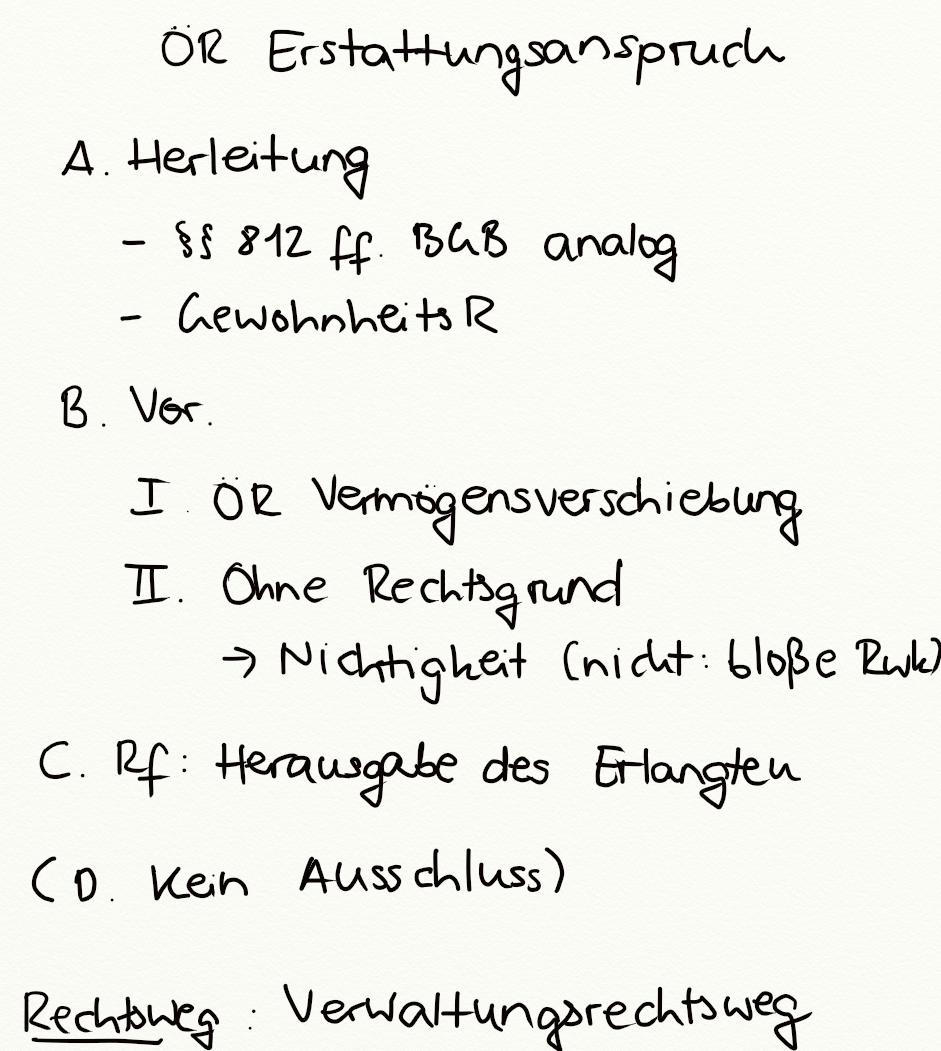 ÖR Erstattungsanspruch
A. Herleitung
- §§ 812 ff. BGB analog
- GewohnheitsR
B. Vor.
I. ÖR Vermögensverschiebung
II. Ohne Rechtsgrund
→ Nichtigkeit (nicht: bloße Rwk)
C. Rf: Herausgabe des Erlangten
(D. Kein Ausschluss)
Rechtsweg: Verwaltungsrechtsweg